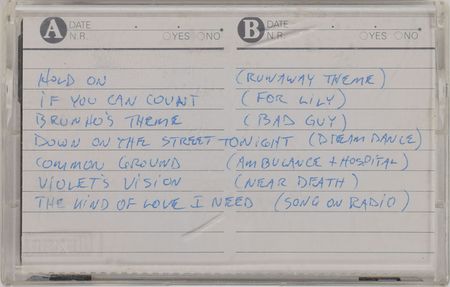 A DATE B DATE
N.R. YES NO N.R. YES NO
HOLD ON (RUNAWAY THEME)
IF YOU CAN COUNT (FOR LILY)
BRUNHO'S THEME (BAD GUY)
DOWN ON THE STREET TONIGHT (DREAM DANCE)
COMMON GROUND (AMBULANCE + HOSPITAL)
VIOLET'S VISION (NEAR DEATH)
THE KIND OF LOVE I NEED (SONG ON RADIO)